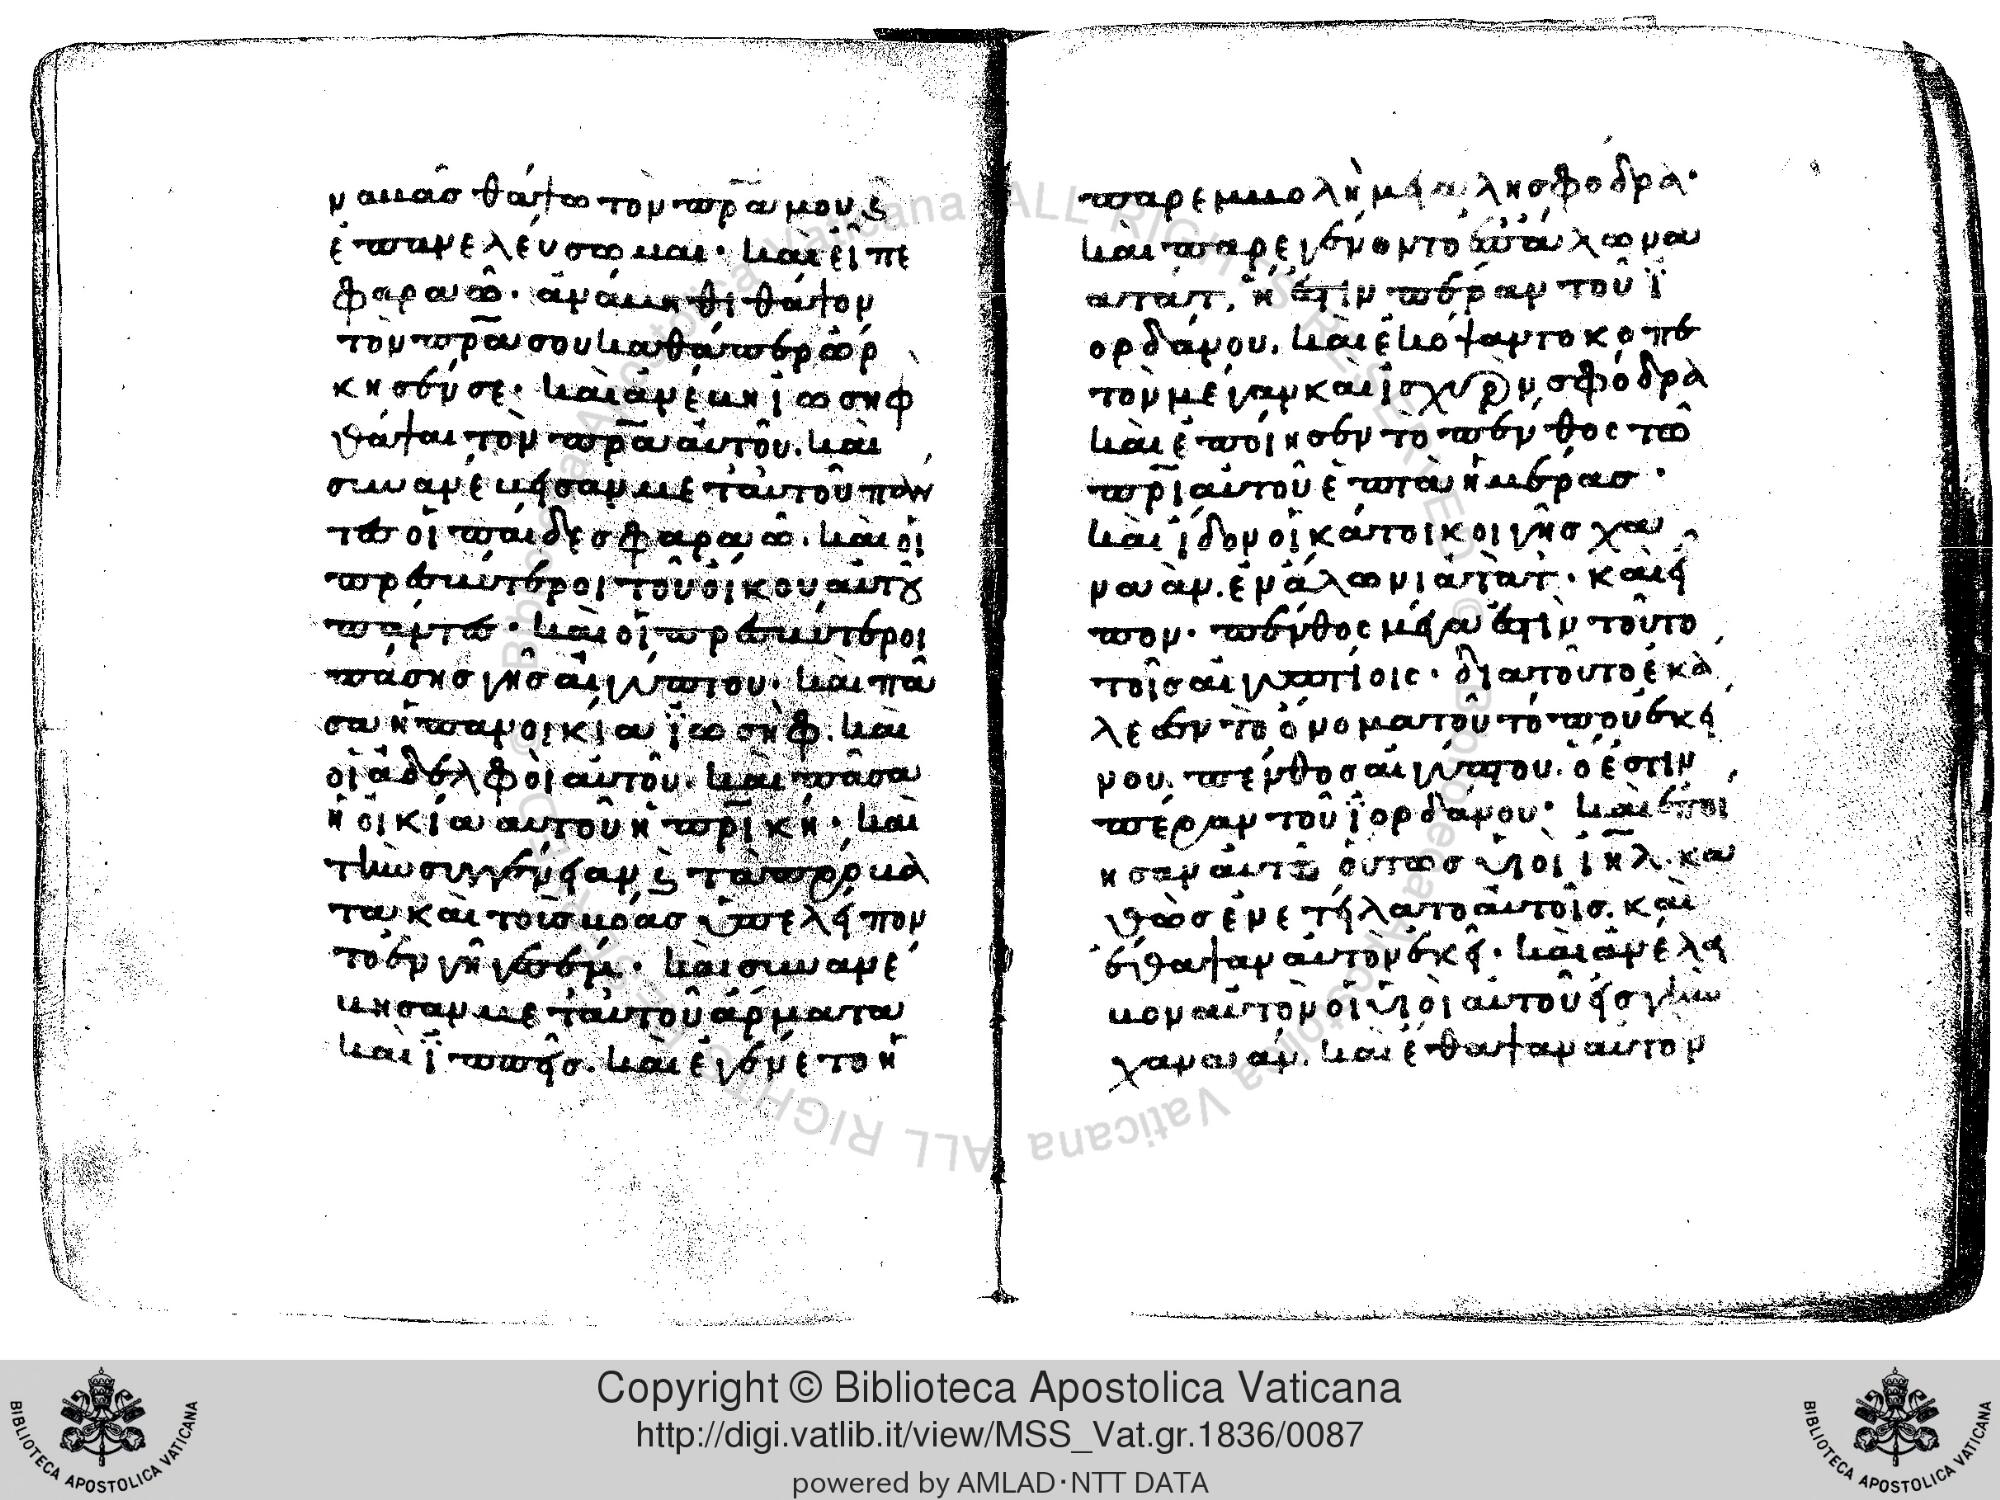 ναβὰσ θάψω τὸν πρ̅α μου ϛ
ἐπανελεύσωμαι· καὶ εἶπε
φαραῶ· ἀνάβηθι θάψον
τὸν πρ̅α σου καθάπερ ὥρ
κησέν σε· καὶ ἀνέβη ἰωσὴφ
θάψαι τὸν πρ̅α αὐτοῦ. καὶ
συνανέβησαν μετ' αὐτοῦ πάν
τες οἱ παῖδες φαραώ. καὶ οἱ
πρεσβύτεροι τοῦ οἴκου αὐτοῦ
πάντες· καὶ οἱ πρεσβύτεροι
πάσησ γῆσ αἰγύπτου· καὶ πᾶ
σα ἡ πανοικία ἰωσὴφ. καὶ
οἱ ἀδελφοὶ αὐτοῦ. καὶ πᾶσα
ἡ οἰκία αὐτοῦ ἡ πρ̅ικὴ· καὶ
τὴν συγγένειαν ϛ τὰ πρόβα
τα καὶ τοὺσ βόασ ὑπελείπον
το ἐν γῆ γεσέμ· καὶ συνανέ
βησαν μετ' αὐτοῦ ἅρματα
καὶ ἱππεῖσ. καὶ ἐγένετο ἡ
παρεμβολὴ μεγάλη σφόδρα·
καὶ παρεγένοντο ἐφ' ἅλωνα
ατατ, ἥ ἐστιν πέραν τοῦ ἰ
ορδάνου. καὶ ἐκόψαντο κοπε
τὸν μέγαν καὶ ἰσχυρὸν σφόδρα
καὶ ἐποίησεν τὸ πένθος τῶ
πρ̅ι αὐτοῦ ἑπτὰ ἡμέρασ·
καὶ ἴδον οἱ κάτοικοι γῆσ χα
ναάν. ἐν ἅλωνι ἀτὰτ· καὶ εἶ
πον· πένθος μέγα ἐστὶν τοῦτο
τοῖσ αἰγυπτίοις· διατοῦτο ἐκά
λεσεν τὸ ὄνομα τοῦ τόπου ἐκεί
νου. πένθοσ αἰγύπτου. ὅ ἐστιν
πέραν τοῦ ἰορδάνου· καὶ ἐποί
ησαν αὐτῶ οὕτωσ υἱοὶ ιη̅λ. κα
θὼσ ἐνετείλατο αὐτοῖσ. καὶ
ἔθαψαν αὐτὸν ἐκεῖ· καὶ ἀνέλα
βον αὐτὸν οἱ υἱοὶ αὐτοῦ εἰσ γῆν
χαναάν. καὶ ἔθαψαν αὐτὸν
Copyright © Biblioteca Apostolica Vaticana
http://digi.vatlib.it/view/MSS_Vat.gr.1836/0087
powered by AMLAD·NTT DATA
BIBLIOTECA APOSTOLICA VATICANA
BIBLIOTECA APOSTOLICA VATICANA